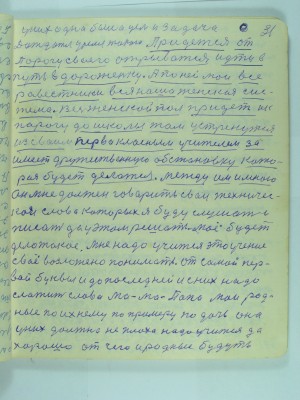 31
у них одна была для и задача
Придется от
порогу своего отрываться идти в
путь в дороженку. Я понял мои все
ровестники вся наша женская сис-
тема. И женской пол придет к
порогу до школы там устринутся
из своим первоклассным учителем за
имеет дружественную обстановку кото-
рая будет делатся. Между им и мною
Он мне должен говорить свои технис-
кои слова которых я буду слушать
писать да у этом решать мое будет
дело такое. Мне надо учится это учение
своё возможно понимать. От самой пер-
вой буквы и до последней и с них надо
слажит слово Ма-ма-Папа мои род-
ные по ихнему по примеру по даче она
у них должна не плоха надо учится да
хорошо от чего и родные будуть